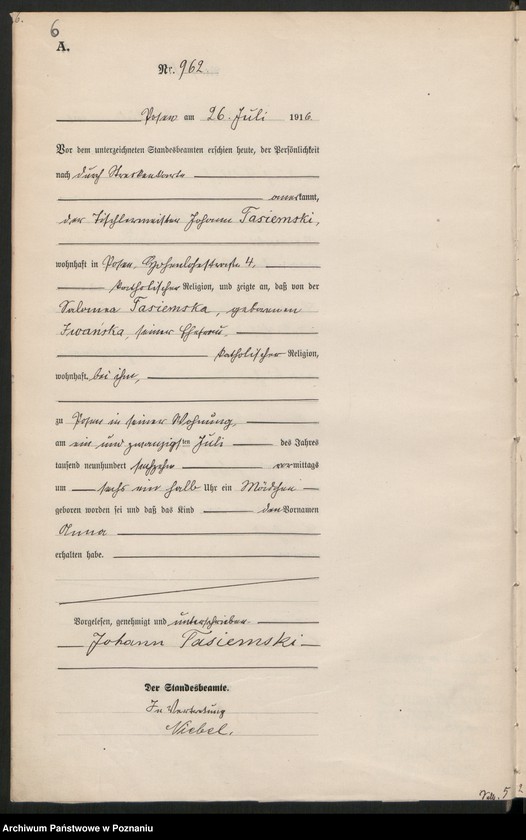 6.
6
A.
Nr. 962.
Posen am 26. Juli 1916.
Vor dem unterzeichneten Standesbeamten erschien heute, der Persönlichkeit
nach durch
anerkannt,
der Tischlermeister Johann Tasiemski,
wohnhaft in Posen, Hohenlohestraße 4,
katholischer Religion, und zeigte an, daß von der
Salomea Tasiemska, geborenen
Iwańska, seiner Ehefrau,
katholischer Religion,
wohnhaft bei ihm,
zu Posen in seiner Wohnung,
am ein und zwanzigsten Juli des Jahres
tausend neunhundert sechzehn vormittags
um sechs ein halb Uhr ein Mädchen
geboren worden sei und daß das Kind den Vornamen
Anna
erhalten habe.
Vorgelesen, genehmigt und unterschrieben.
Johann Tasiemski
Der Standesbeamte.
In Vertretung
Niebel.
5
2
Archiwum Państwowe w Poznaniu